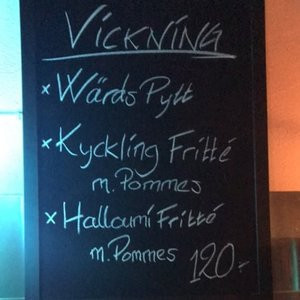 VICKNING
x Wärds Pytt
x Kyckling Fritté
m. Pommes
x Halloumi Fritté
m. Pommes 120:-